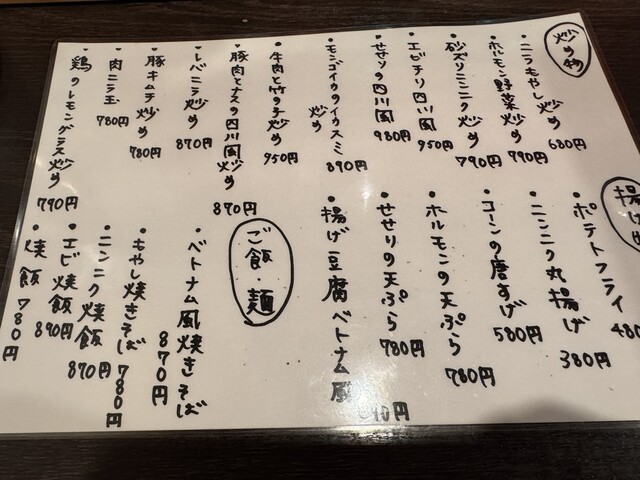 炒め物
・ニラもやし炒め 680円
・ホルモン野菜炒め 790円
・砂ズリニンニク炒め 790円
・エビチリ四川風 950円
・せせりの四川風 980円
・モンゴイカのイカスミ
炒め 890円
・牛肉と竹の子炒め 950円
・豚肉とナスの四川風炒め 870円
・レバニラ炒め 870円
・豚キムチ炒め 780円
・肉ニラ玉 780円
・鶏のレモングラス炒め 790円
揚げ
・ポテトフライ 480
・ニンニク丸揚げ 380円
・コーンの唐すげ 580円
・ホルモンの天ぷら 780円
・せせりの天ぷら 780円
・揚げ豆腐ベトナム風
ご飯・麺
・ベトナム風焼きそば 870円
・もやし焼きそば 780円
・ニンニク焼飯 870円
・エビ焼飯 890円
・焼飯 780円